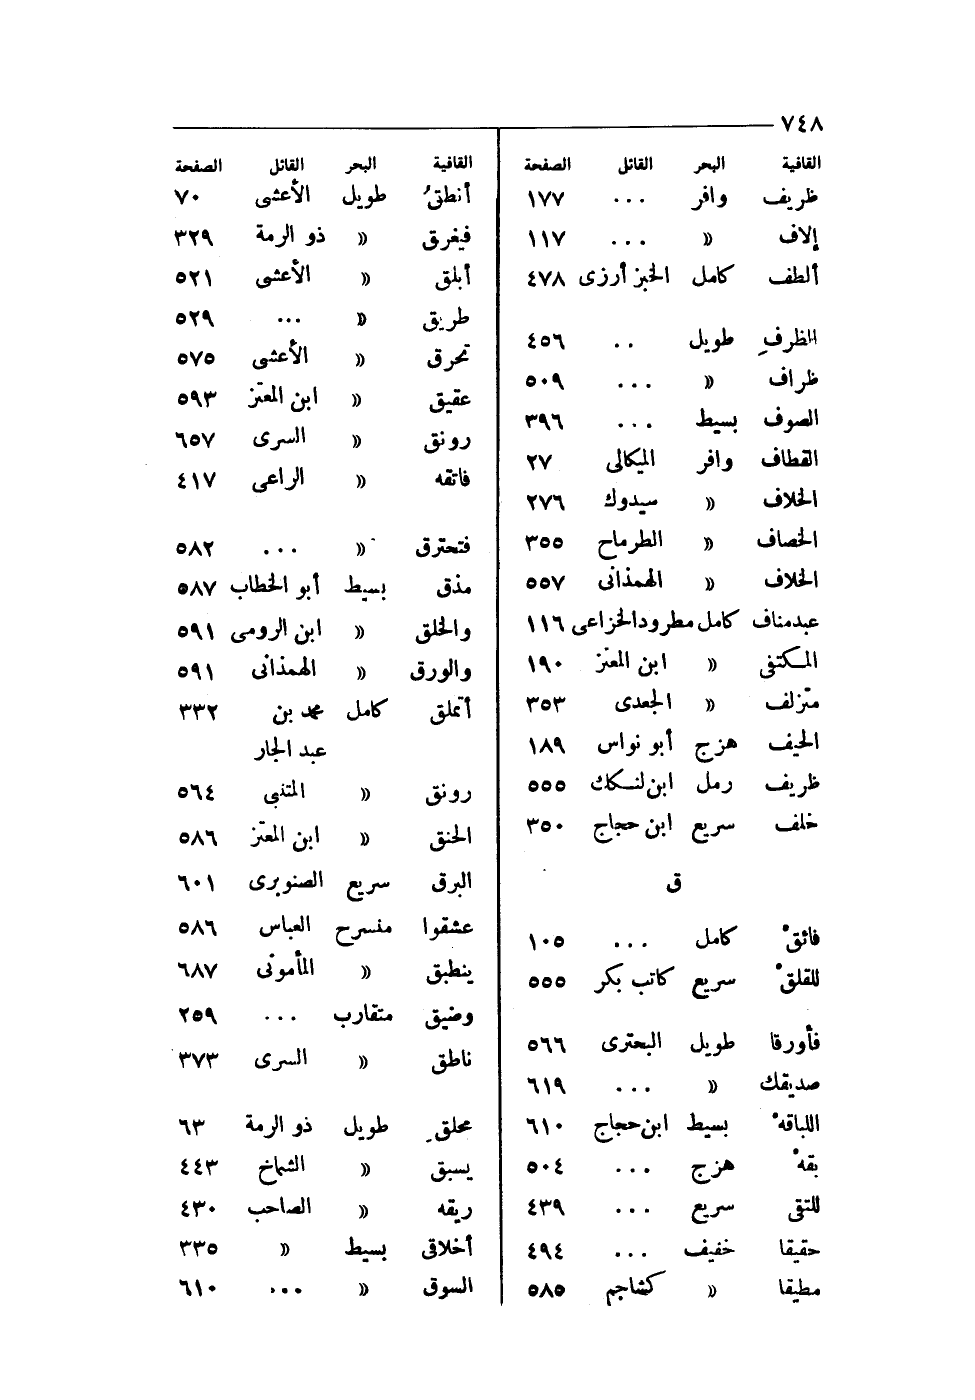 ٧٤٨
القافية البحر القائل الصفحة
ظريف وافر ... ١٧٧
إلاف » ... ١١٧
ألطف كامل الخبز أرزى ٤٧٨
الظرفِ طويل .. ٤٥٦
ظراف » ... ٥٠٩
الصوف بسيط ... ٣٩٦
القطاف وافر الميكالى ٢٧
الخلاف » سيدوك ٢٧٦
الخصاف » الطرماح ٣٥٥
الخلاف » الهمذانى ٥٥٧
عبدمناف كامل مطرودالخزاعى ١١٦
المكتفى » ابن المعتز ١٩٠
متزلف » الجعدى ٣٥٣
الحيف هزج أبو نواس ١٨٩
ظريف رمل ابن لنكك ٥٥٥
خلف سريع ابن حجاج ٣٥٠
ق
فائقْ كامل ... ١٠٥
للقلقْ سريع كاتب بكر ٥٥٥
فأورقا طويل البحترى ٥٦٦
صديقك » ... ٦١٩
اللباقهْ بسيط ابن حجاج ٦١٠
بقهْ هزج ... ٥٠٤
للتقى سريع ... ٤٣٩
حقيقا خفيف ... ٤٩٤
مطيقا » كشاجم ٥٨٥
القافية البحر القائل الصفحة
أنطقُ طويل الأعشى ٧٠
فيغرق » ذو الرمة ٣٢٩
أبلق » الأعشى ٥٢١
طريق » ... ٥٢٩
تحرق » الأعشى ٥٧٥
عقيق » ابن المعتز ٥٩٣
رونق » السرى ٦٥٧
فاتقه » الراعى ٤١٧
فتحترق » ... ٥٨٢
مذق بسيط أبو الخطاب ٥٨٧
والخلق » ابن الرومى ٥٩١
والورق » الهمذانى ٥٩١
أتملق كامل محمد بن ٣٣٢
عبد الجار
رونق » المتنبى ٥٦٤
الخنق » ابن المعتز ٥٨٦
البرق سريع الصنوبرى ٦٠١
عشقوا منسرح العباس ٥٨٦
ينطبق » المأمونى ٦٨٧
وضيق متقارب ... ٢٥٩
ناطق » السرى ٣٧٣
محلقِ طويل ذو الرمة ٦٣
يسبق » الشماخ ٤٤٣
ريقه » الصاحب ٤٣٠
أخلاقى بسيط » ٣٣٥
السوق » ... ٦١٠